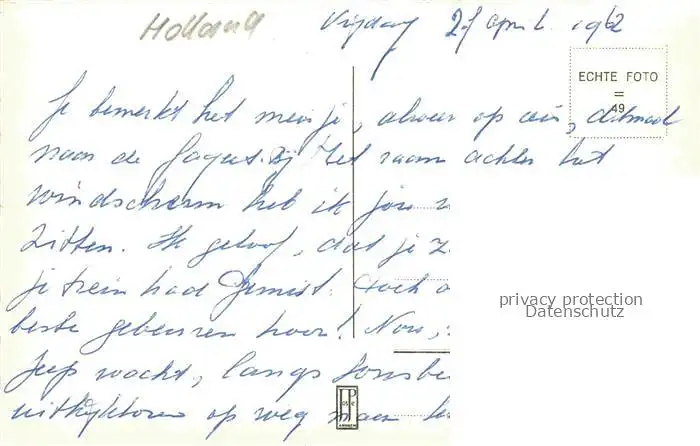 Holland Vrijdag 27 april 1962
ECHTE FOTO
=
49
Je bemerkt het meisje, alweer op reis, ditmaal
naar de Bij het raam achter het
windscherm heb ik jou
zitten. Ik geloof, dat je
je trein had gemist. Toch
beste gebeuren hoor! Nou,
Jeep wacht, langs
uitkijktoren op weg naar
privacy protection
Datenschutz